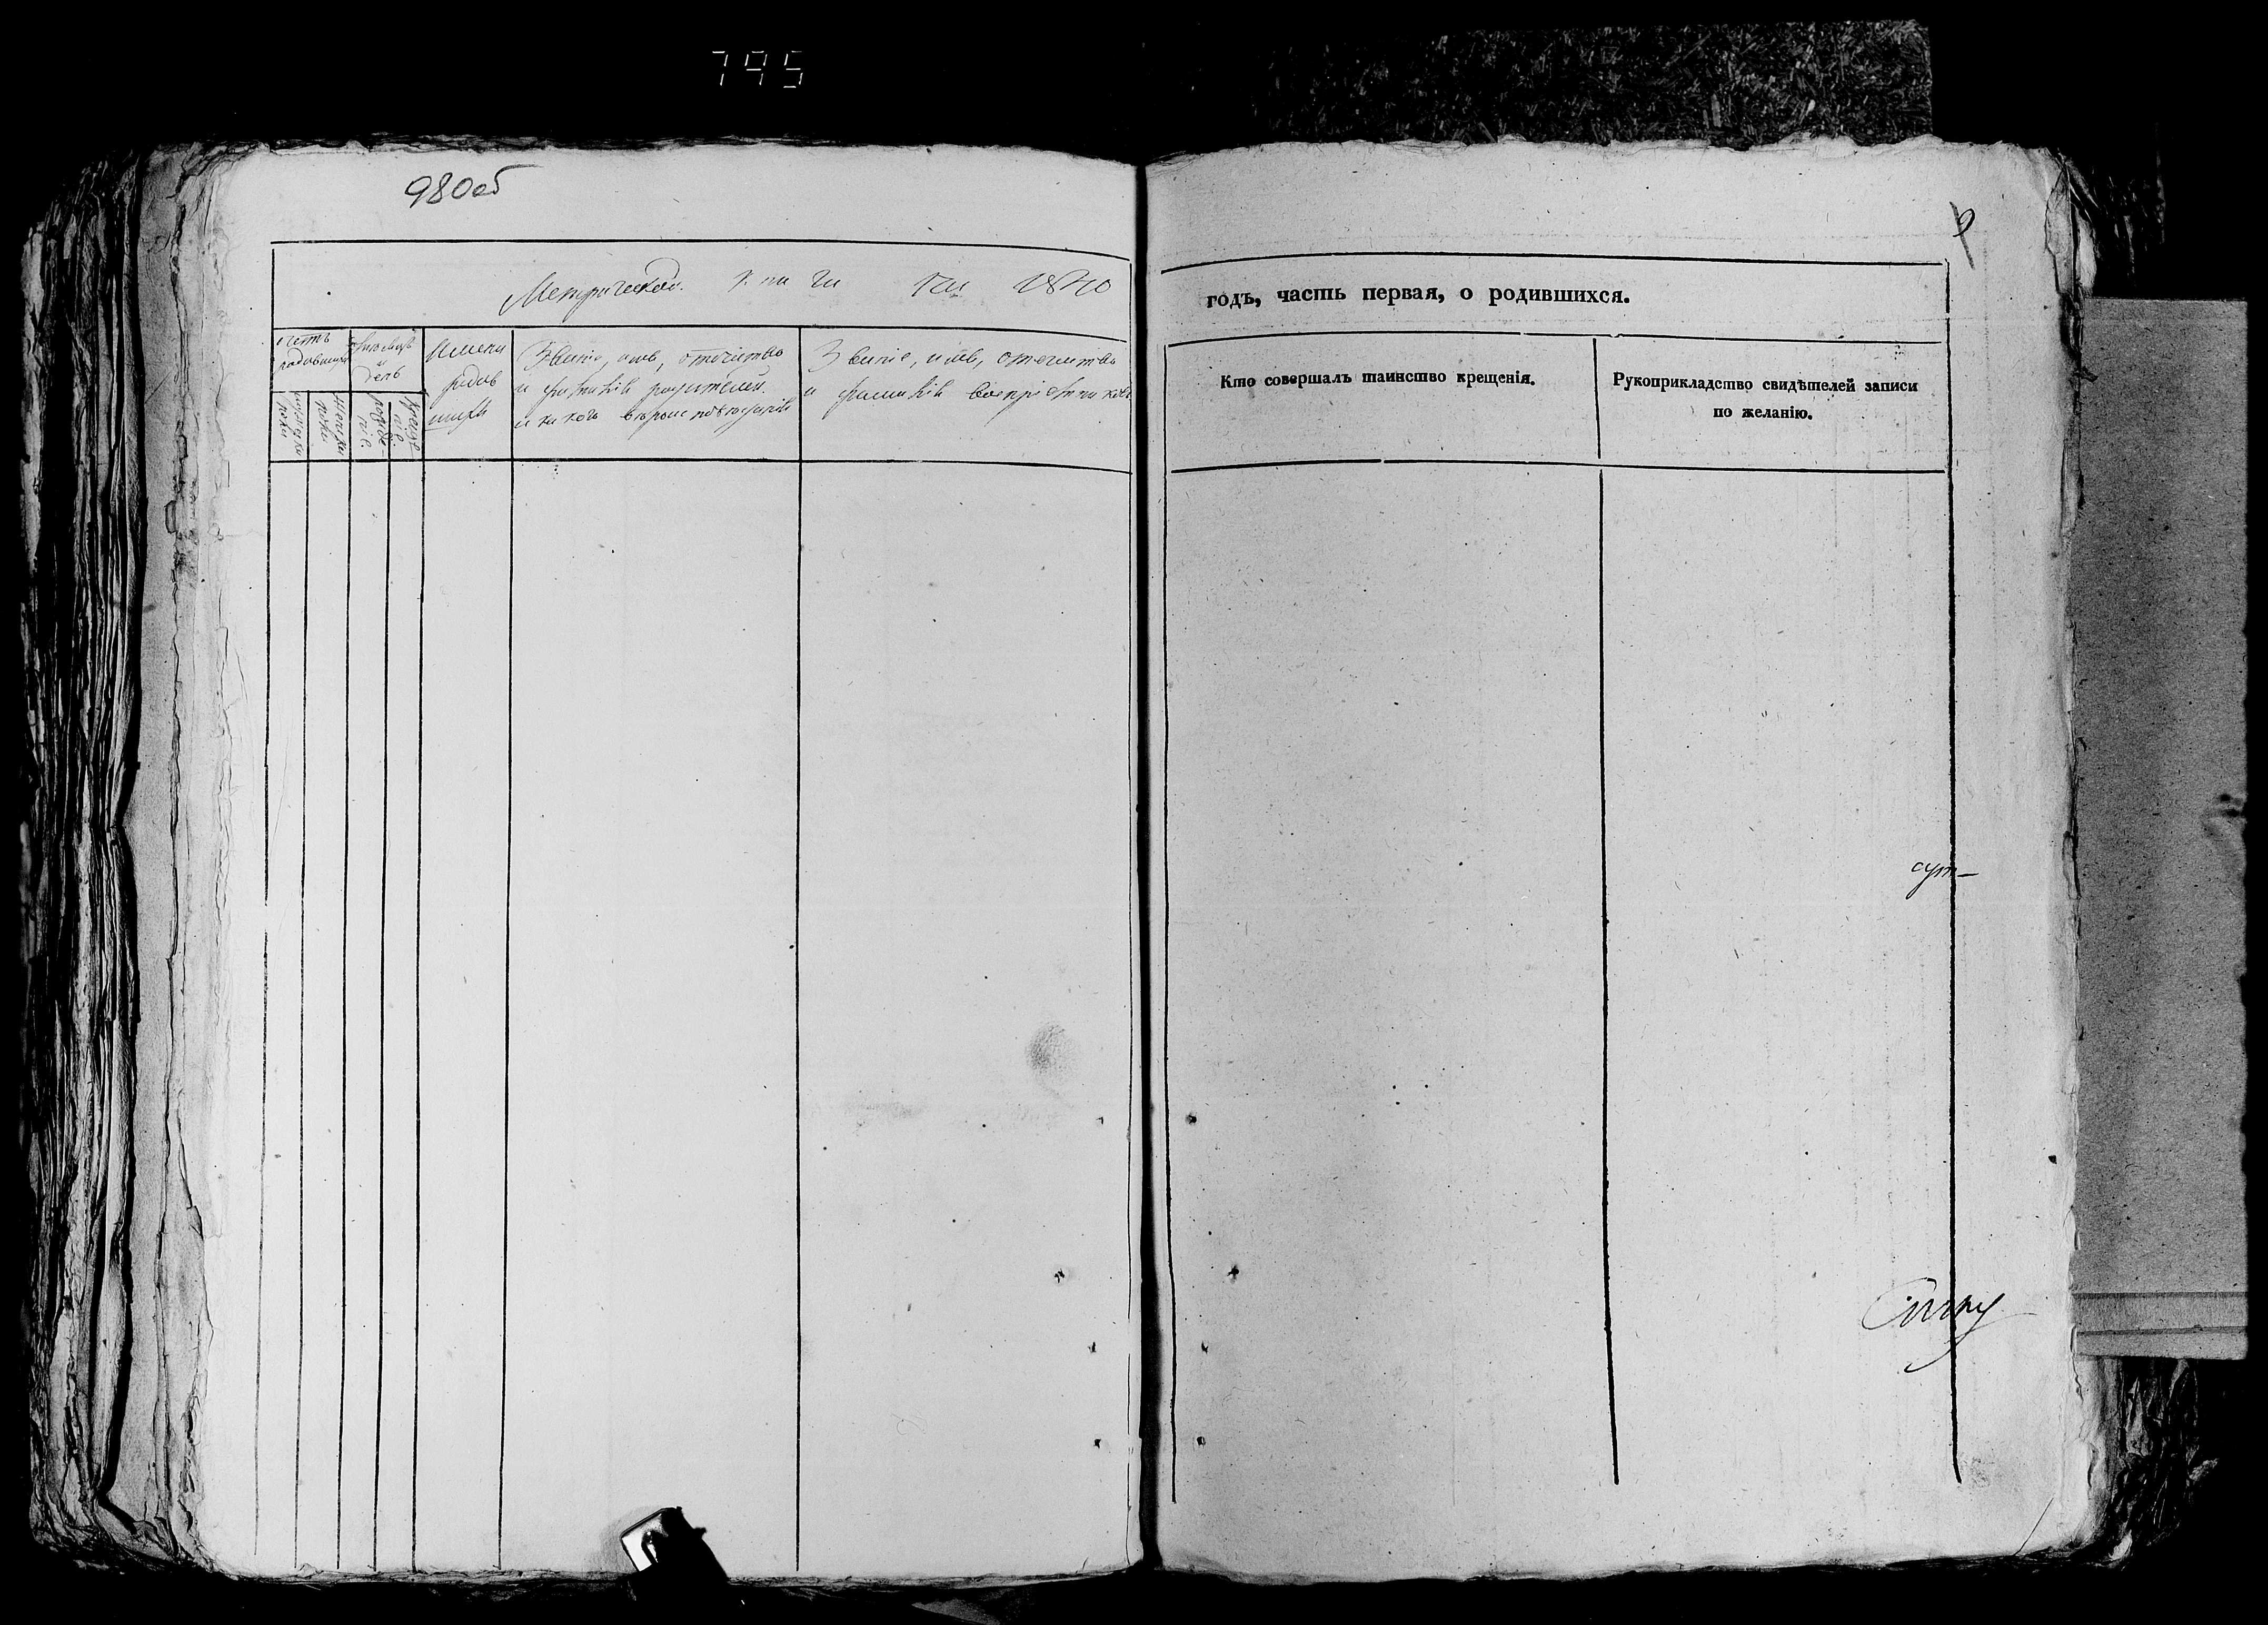 795
980 об
9
Метрической книги на 1840
годъ, часть первая, о родившихся.
Счетъ
родившихся
Мѣсяцъ
и
день
Имена
родив
шихся
Званіе, имя, отчество
и фамилія родителей.
и какого вѣроисповѣданія
Званіе, имя, отчество
и фамилія воспріемниковъ
Кто совершалъ таинство крещенія.
Рукоприкладство свидѣтелей записи
по желанію.
рожде-
ніе.
креще
ніе.